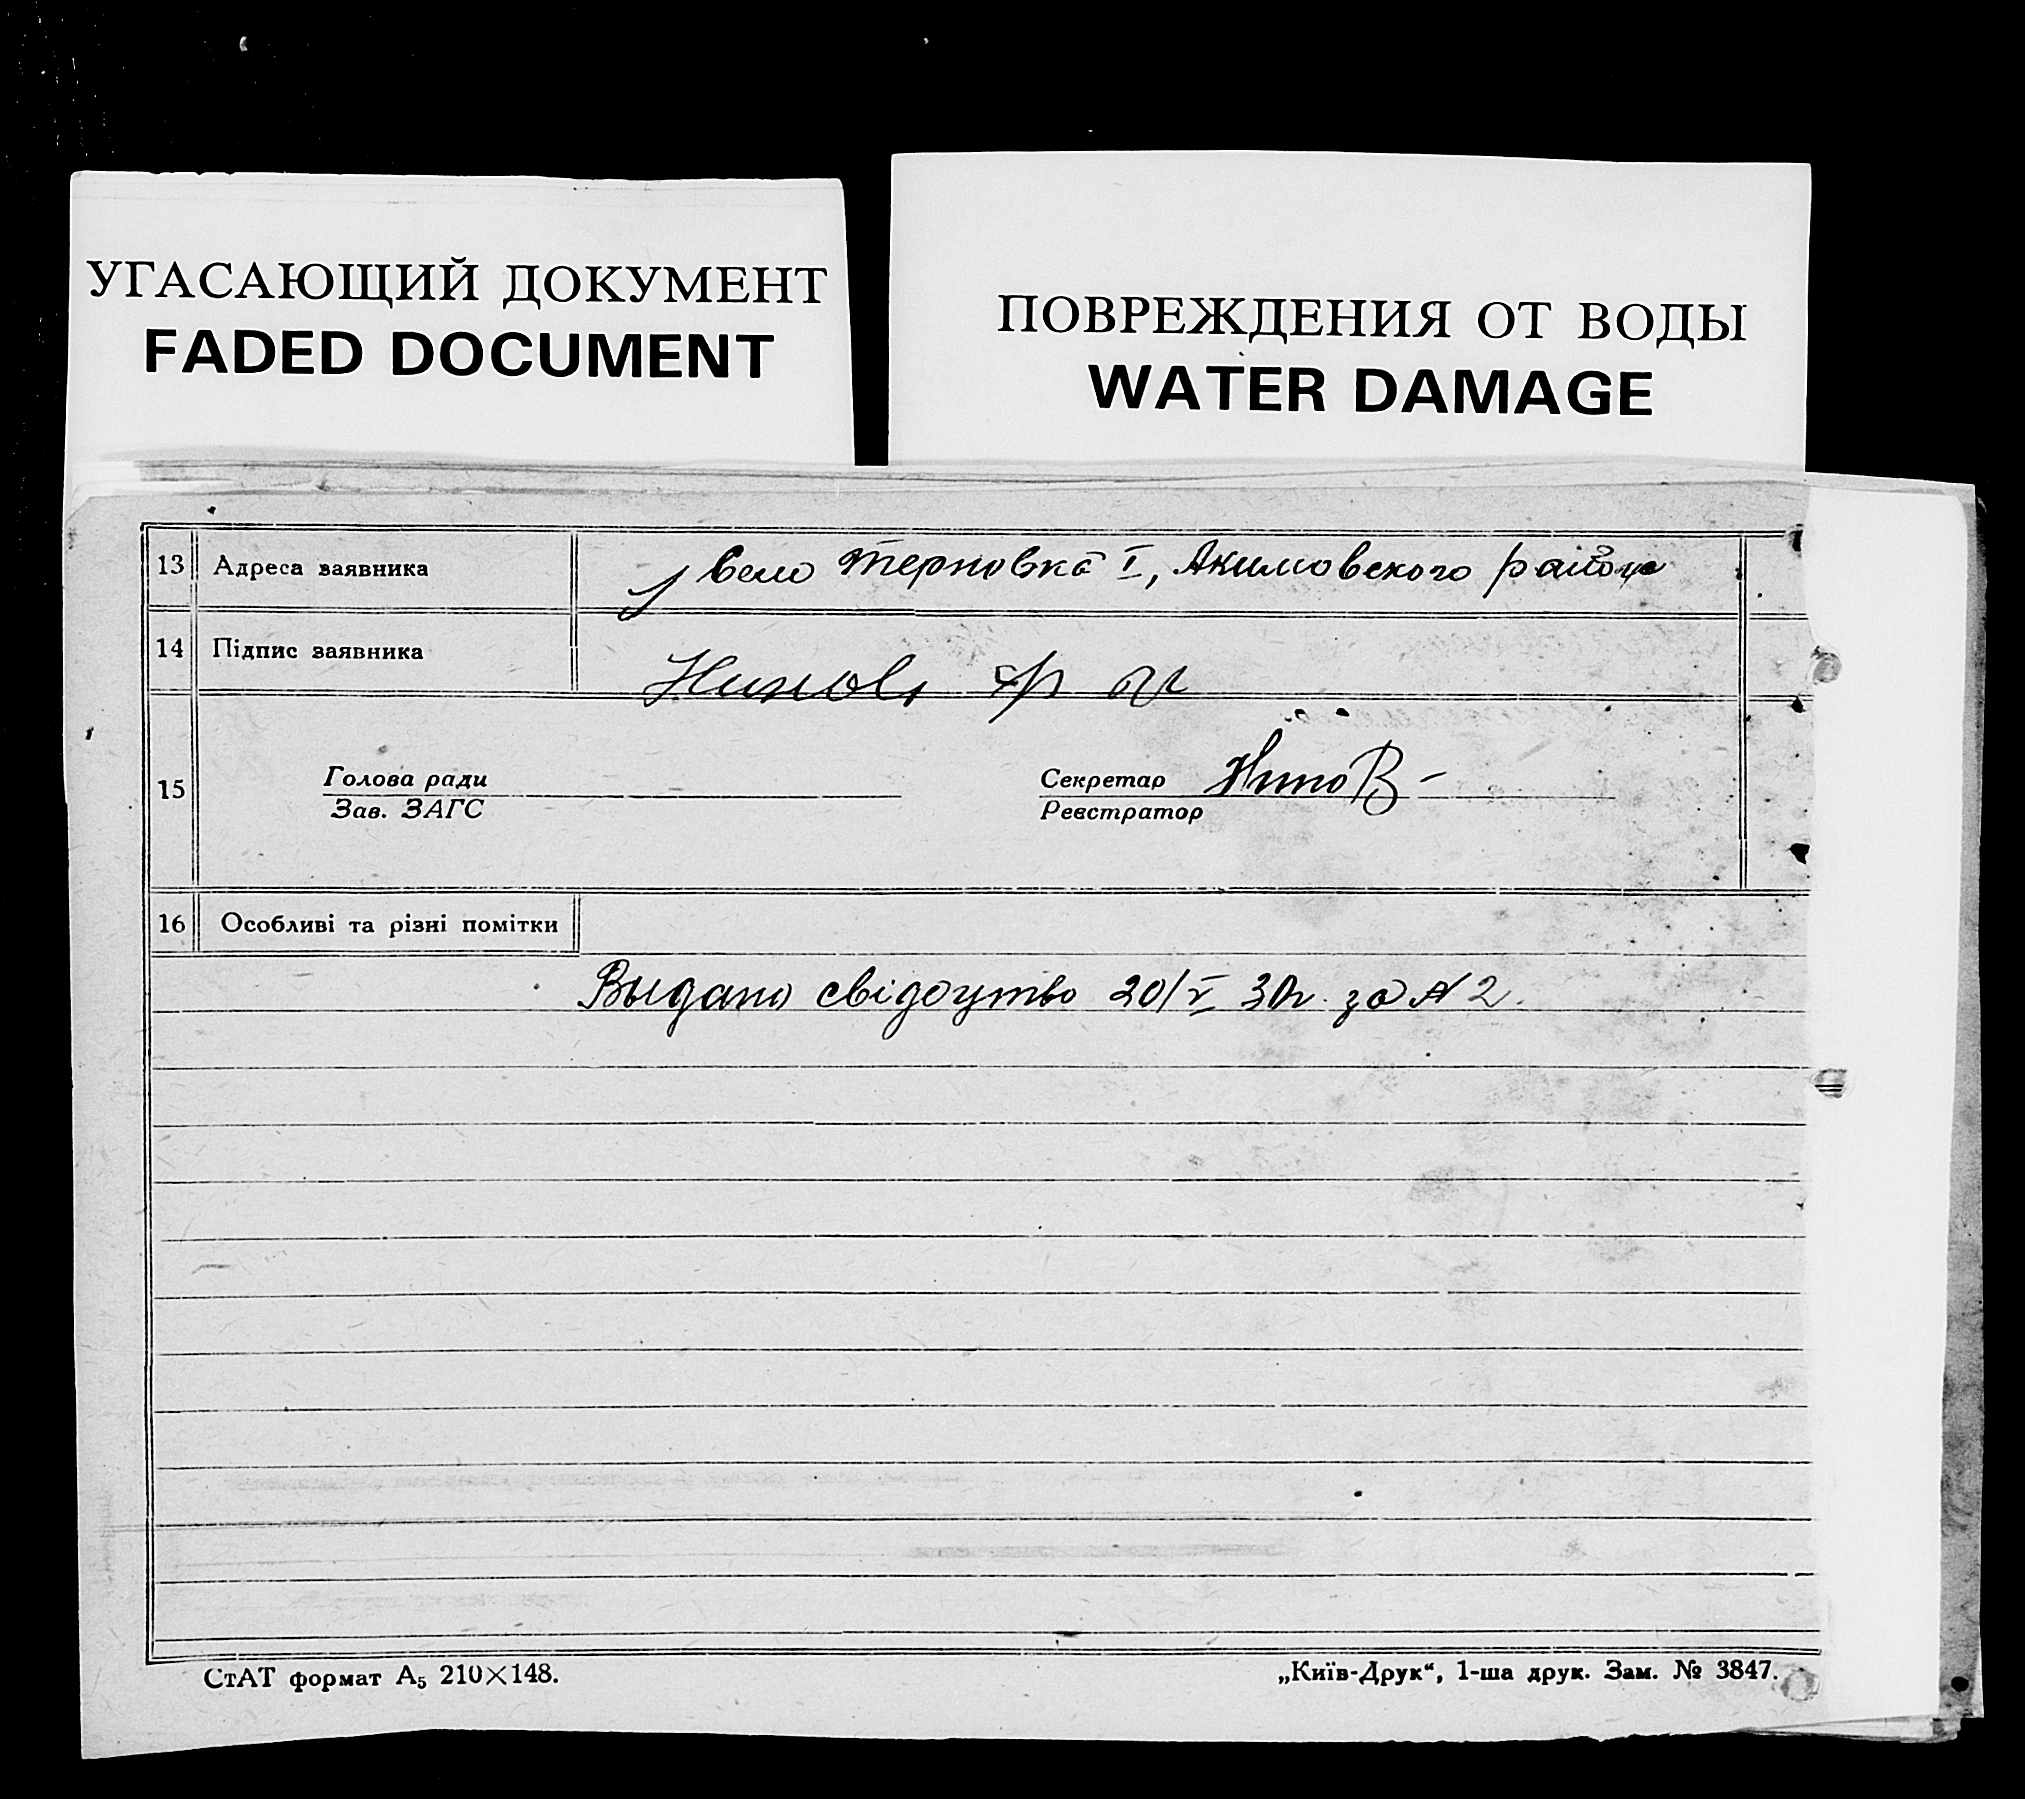 УГАСАЮЩИЙ ДОКУМЕНТ
FADED DOCUMENT
ПОВРЕЖДЕНИЯ ОТ ВОДЫ
WATER DAMAGE
13 Адреса заявника село Терновка I, Акимовского района
14 Підпис заявника
15 Голова ради
Зав. ЗАГС
Секретар
Реєстратор
16 Особливі та різні помітки
Выдано свідоцтво 20/V 30г. за № 2.
СтАТ формат А5 210×148.
„Київ-Друк“, 1-ша друк. Зам. № 3847.